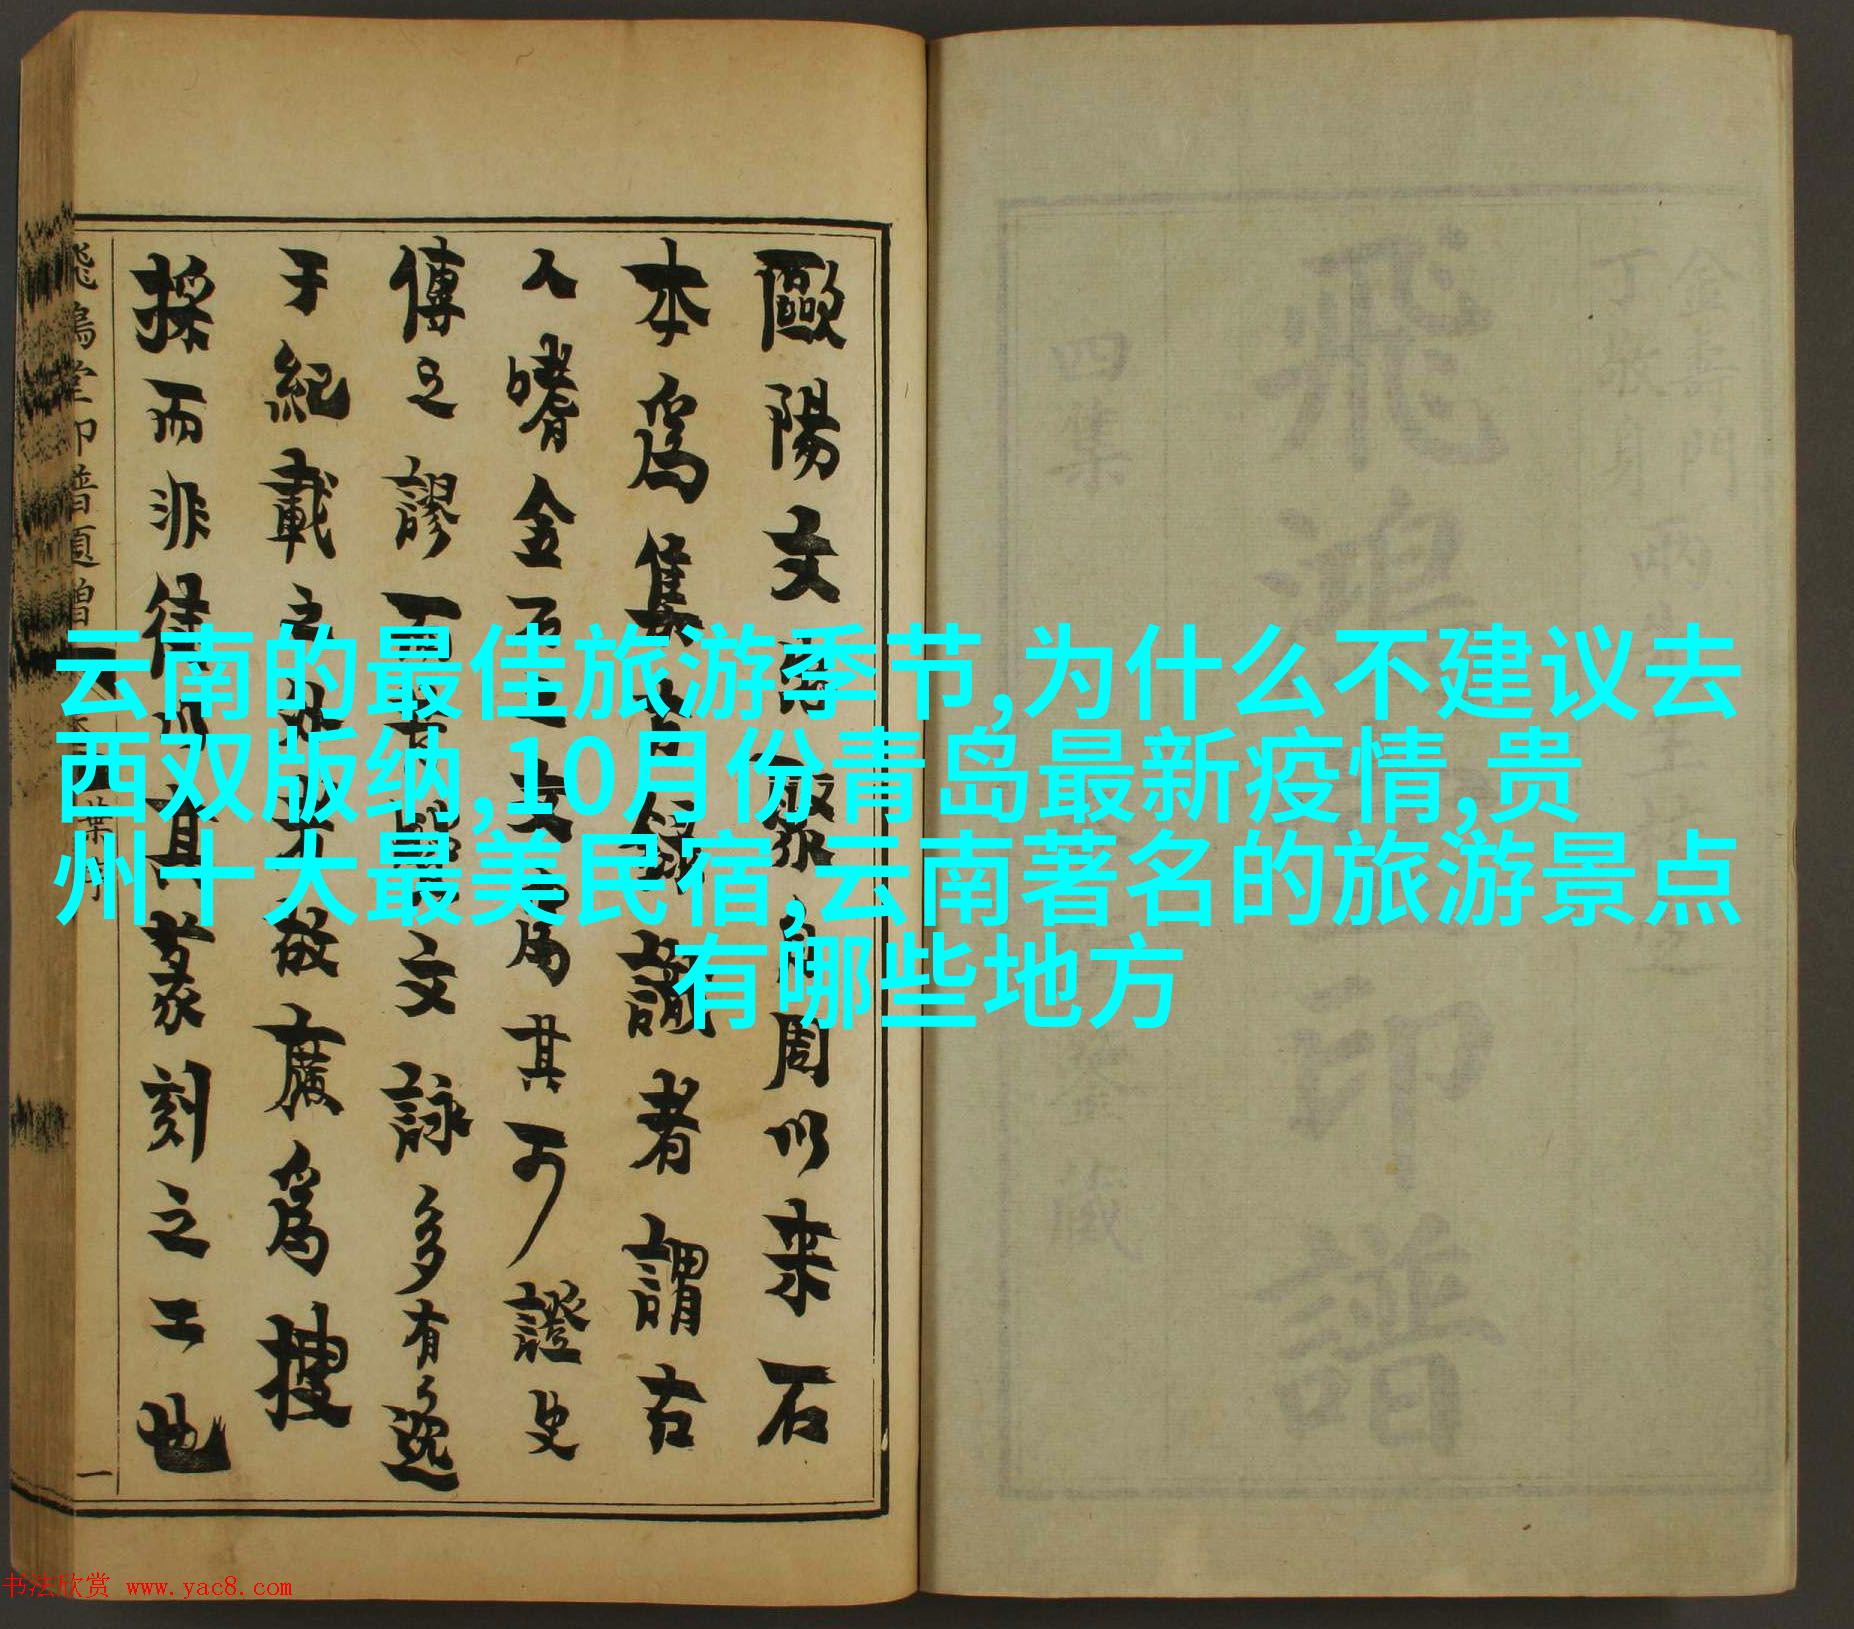 云南的最佳旅游季节,为什么不建议去
西双版纳,10月份青岛最新疫情,贵
州十大最美民宿,云南著名的旅游景点
有哪些地方
金壽門
丁敬身
兩
飛鴻堂印譜
四集
藏
歐陽文自周以來石
本為集古錄識者謂古
人嗜金石之文為其可證史
傳之謬而文詠多有逸
于紀載之敬廣為搜
採而非徒篆刻之工也
飛鴻堂印譜
一
书法欣赏 www.yac8.com